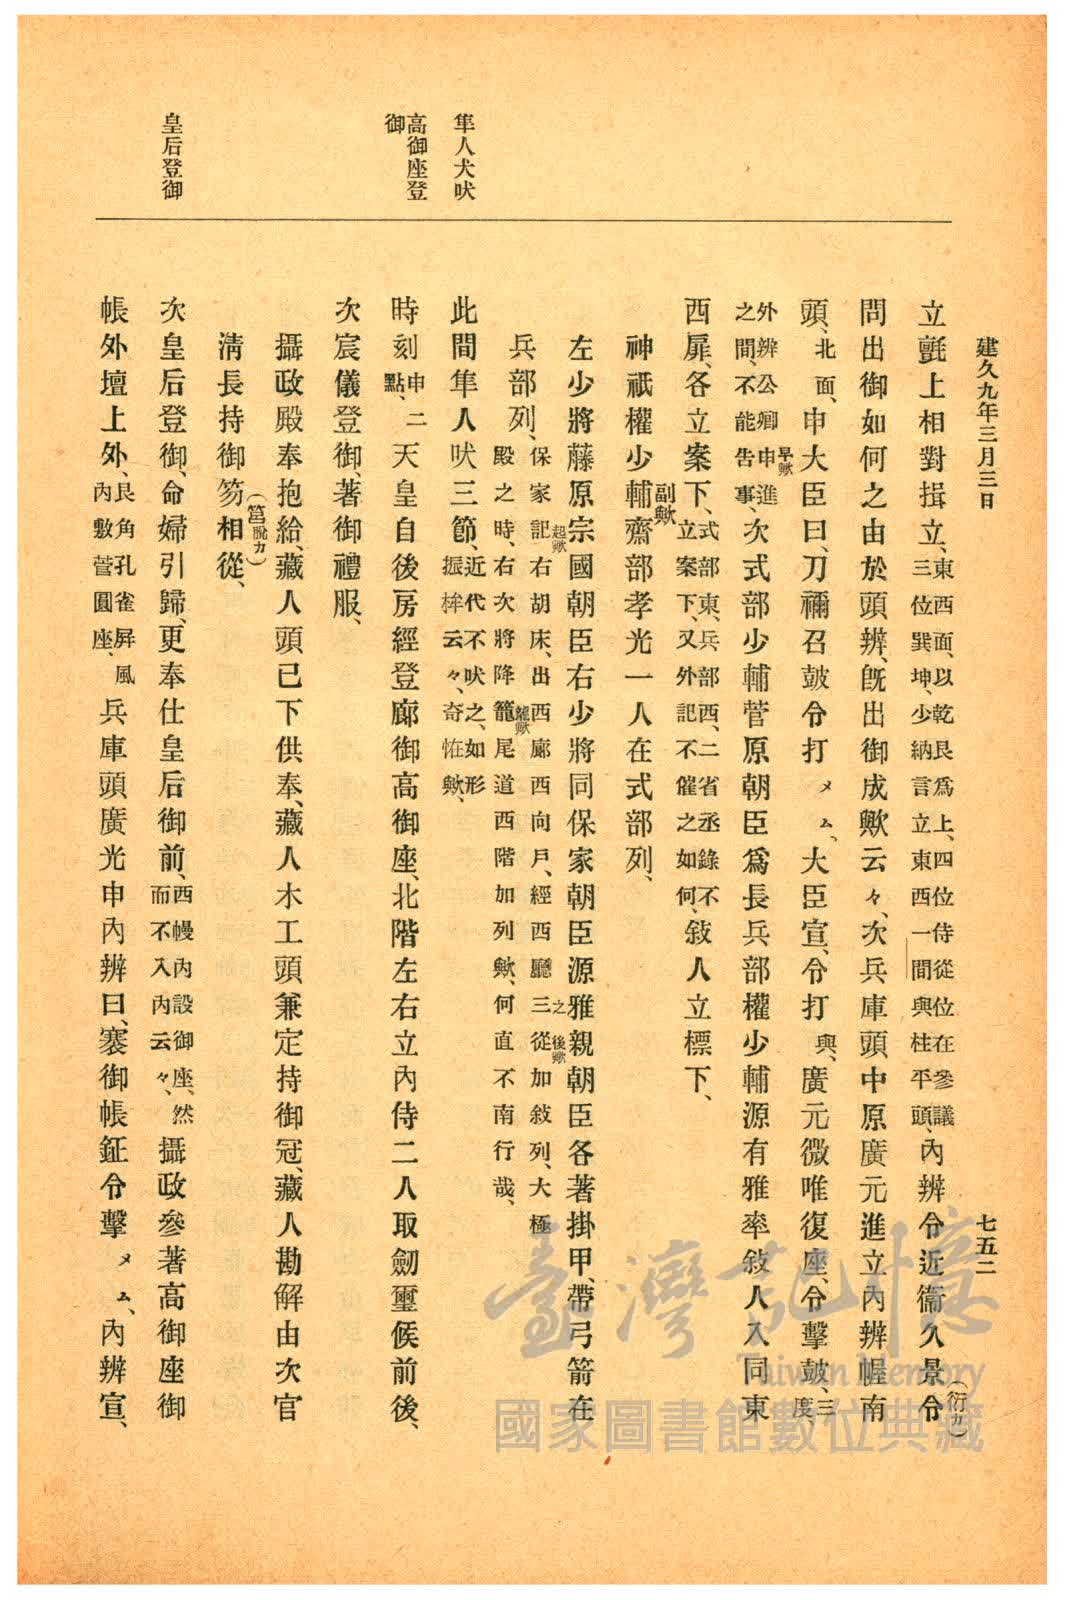 建久九年三月三日
七五二
隼人犬吠
高御座登御
皇后登御
立氈上相對揖立、東西面、以乾艮爲上、四位侍從位在參議三位巽坤、少納言立東西一間與柱平頭、內辨令近衞久景令(衍カ)
問出御如何之由於頭辨、旣出御成歟云々、次兵庫頭中原廣元進立內辨幄南
頭、北面、申大臣曰、刀禰召皷令打メム、大臣宣、令打與、廣元微唯復座、令擊皷、三度
外辨公卿申早歟進之間、不能吿事、次式部少輔菅原朝臣爲長兵部權少輔源有雅率敍人入同東
西扉、各立案下、式部東、兵部西、二省丞錄不立案下、又外記不催之如何、敍人立標下、
神祇權少輔副歟齋部孝光一人在式部列、
左少將藤原宗國朝臣右少將同保家朝臣源雅親朝臣各著掛甲、帶弓箭在
兵部列、保家記起歟右胡床、出西廊西向戶、經西廳之後歟三從加敍列、大極殿之時、右次將降籠龍歟尾道西階加列歟、何直不南行哉、
此間隼人吠三節、近代不吠之、如形振桙云々、奇恠歟、
時刻申二點、天皇自後房經登廊御高御座、北階左右立內侍二人取劒璽候前後、
次宸儀登御、著御禮服、
攝政殿奉抱給、藏人頭已下供奉、藏人木工頭兼定持御冠、藏人勘解由次官
淸長持御笏(筥脫カ)相從、
次皇后登御、命婦引歸、更奉仕皇后御前、西幔內設御座、然而不入內云々、攝政參著高御座御
帳外壇上外、艮角孔雀屛風內敷菅圓座、兵庫頭廣光申內辨曰、褰御帳鉦令擊メム、內辨宣、
臺灣記憶
Taiwan Memory
國家圖書館數位典藏